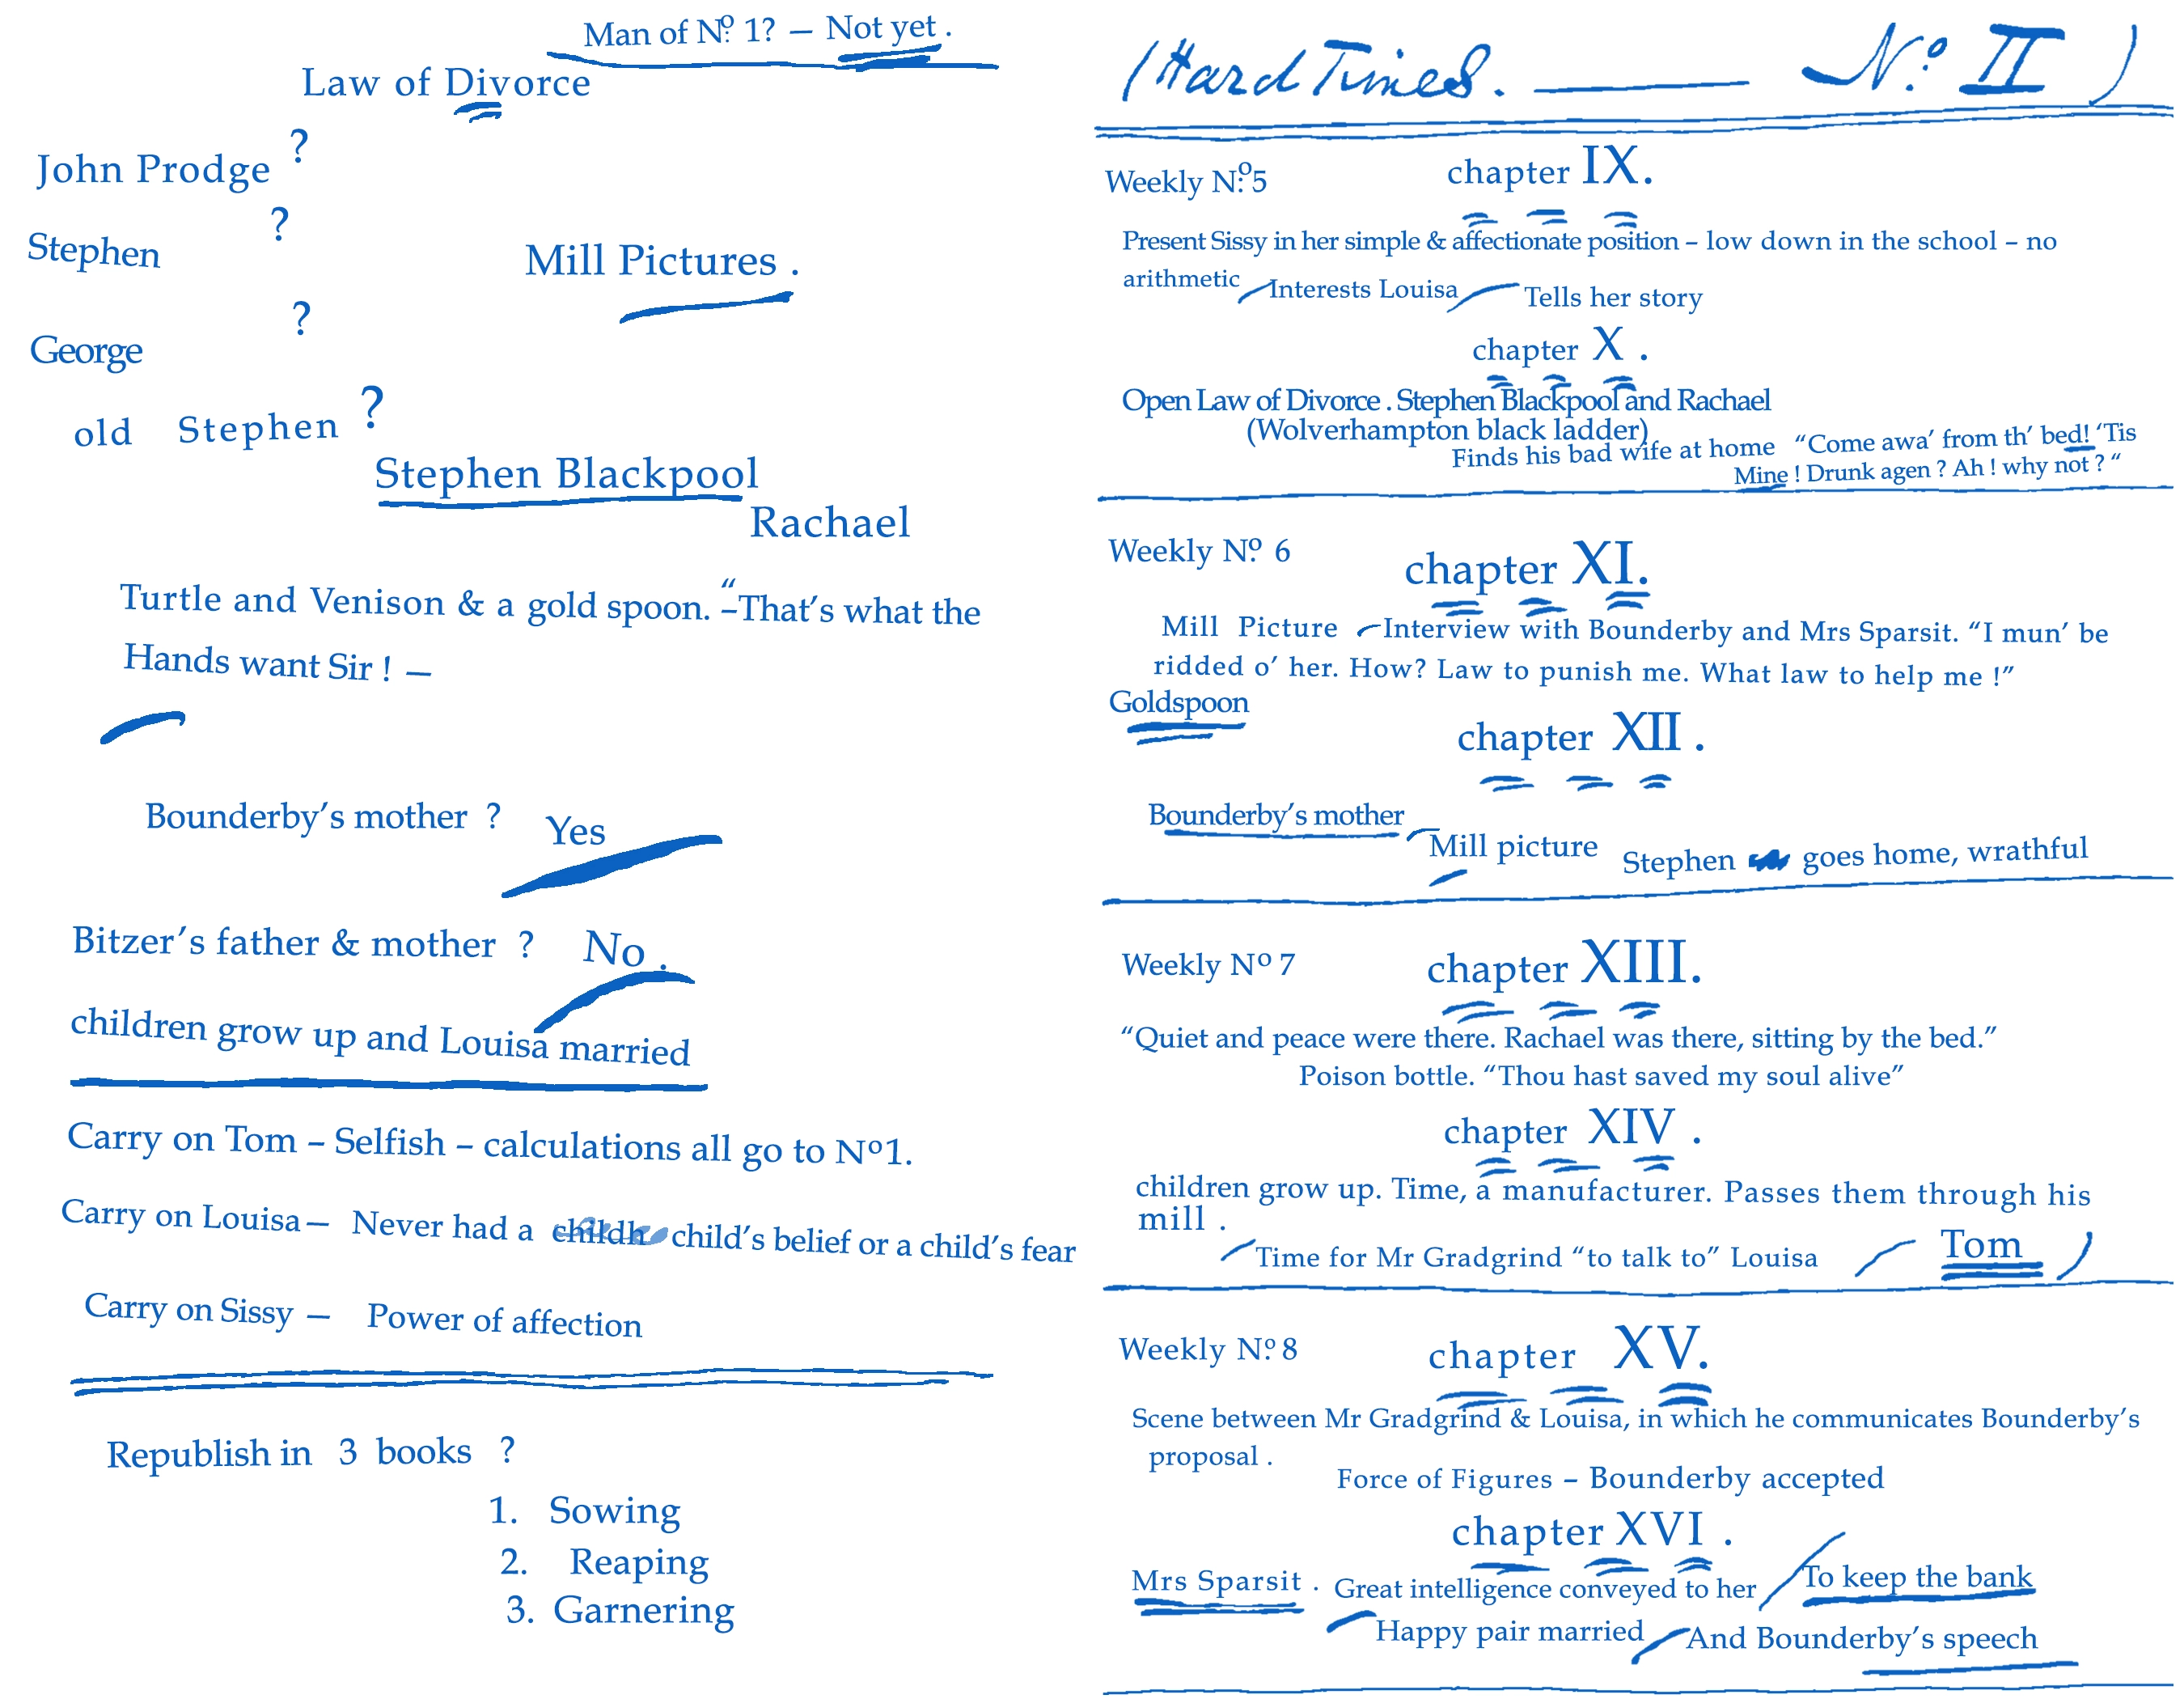 Man of Nº 1? — Not yet.
Law of Divorce
John Prodge ?
Stephen ?
Mill Pictures.
George ?
old Stephen ?
Stephen Blackpool
Rachael
Turtle and Venison & a gold spoon. “–That’s what the
Hands want Sir ! —
Bounderby’s mother ? Yes
Bitzer’s father & mother ? No.
children grow up and Louisa married
Carry on Tom – Selfish – calculations all go to Nº1.
Carry on Louisa — Never had a childh child’s belief or a child’s fear
Carry on Sissy — Power of affection
Republish in 3 books ?
1. Sowing
2. Reaping
3. Garnering
(Hard Times. —— Nº II)
Weekly Nº 5 chapter IX.
Present Sissy in her simple & affectionate position – low down in the school – no
arithmetic Interests Louisa Tells her story
chapter X.
Open Law of Divorce. Stephen Blackpool and Rachael
(Wolverhampton black ladder)
Finds his bad wife at home “Come awa’ from th’ bed! ‘Tis
Mine ! Drunk agen ? Ah ! why not ? “
Weekly Nº 6 chapter XI.
Mill Picture –Interview with Bounderby and Mrs Sparsit. “I mun’ be
ridded o’ her. How? Law to punish me. What law to help me !”
Goldspoon
chapter XII.
Bounderby’s mother
Mill picture Stephen goes home, wrathful
Weekly Nº 7 chapter XIII.
“Quiet and peace were there. Rachael was there, sitting by the bed.”
Poison bottle. “Thou hast saved my soul alive”
chapter XIV.
children grow up. Time, a manufacturer. Passes them through his
mill.
Time for Mr Gradgrind “to talk to” Louisa Tom)
Weekly Nº 8 chapter XV.
Scene between Mr Gradgrind & Louisa, in which he communicates Bounderby’s
proposal.
Force of Figures – Bounderby accepted
chapter XVI.
Mrs Sparsit. Great intelligence conveyed to her To keep the bank
Happy pair married And Bounderby’s speech